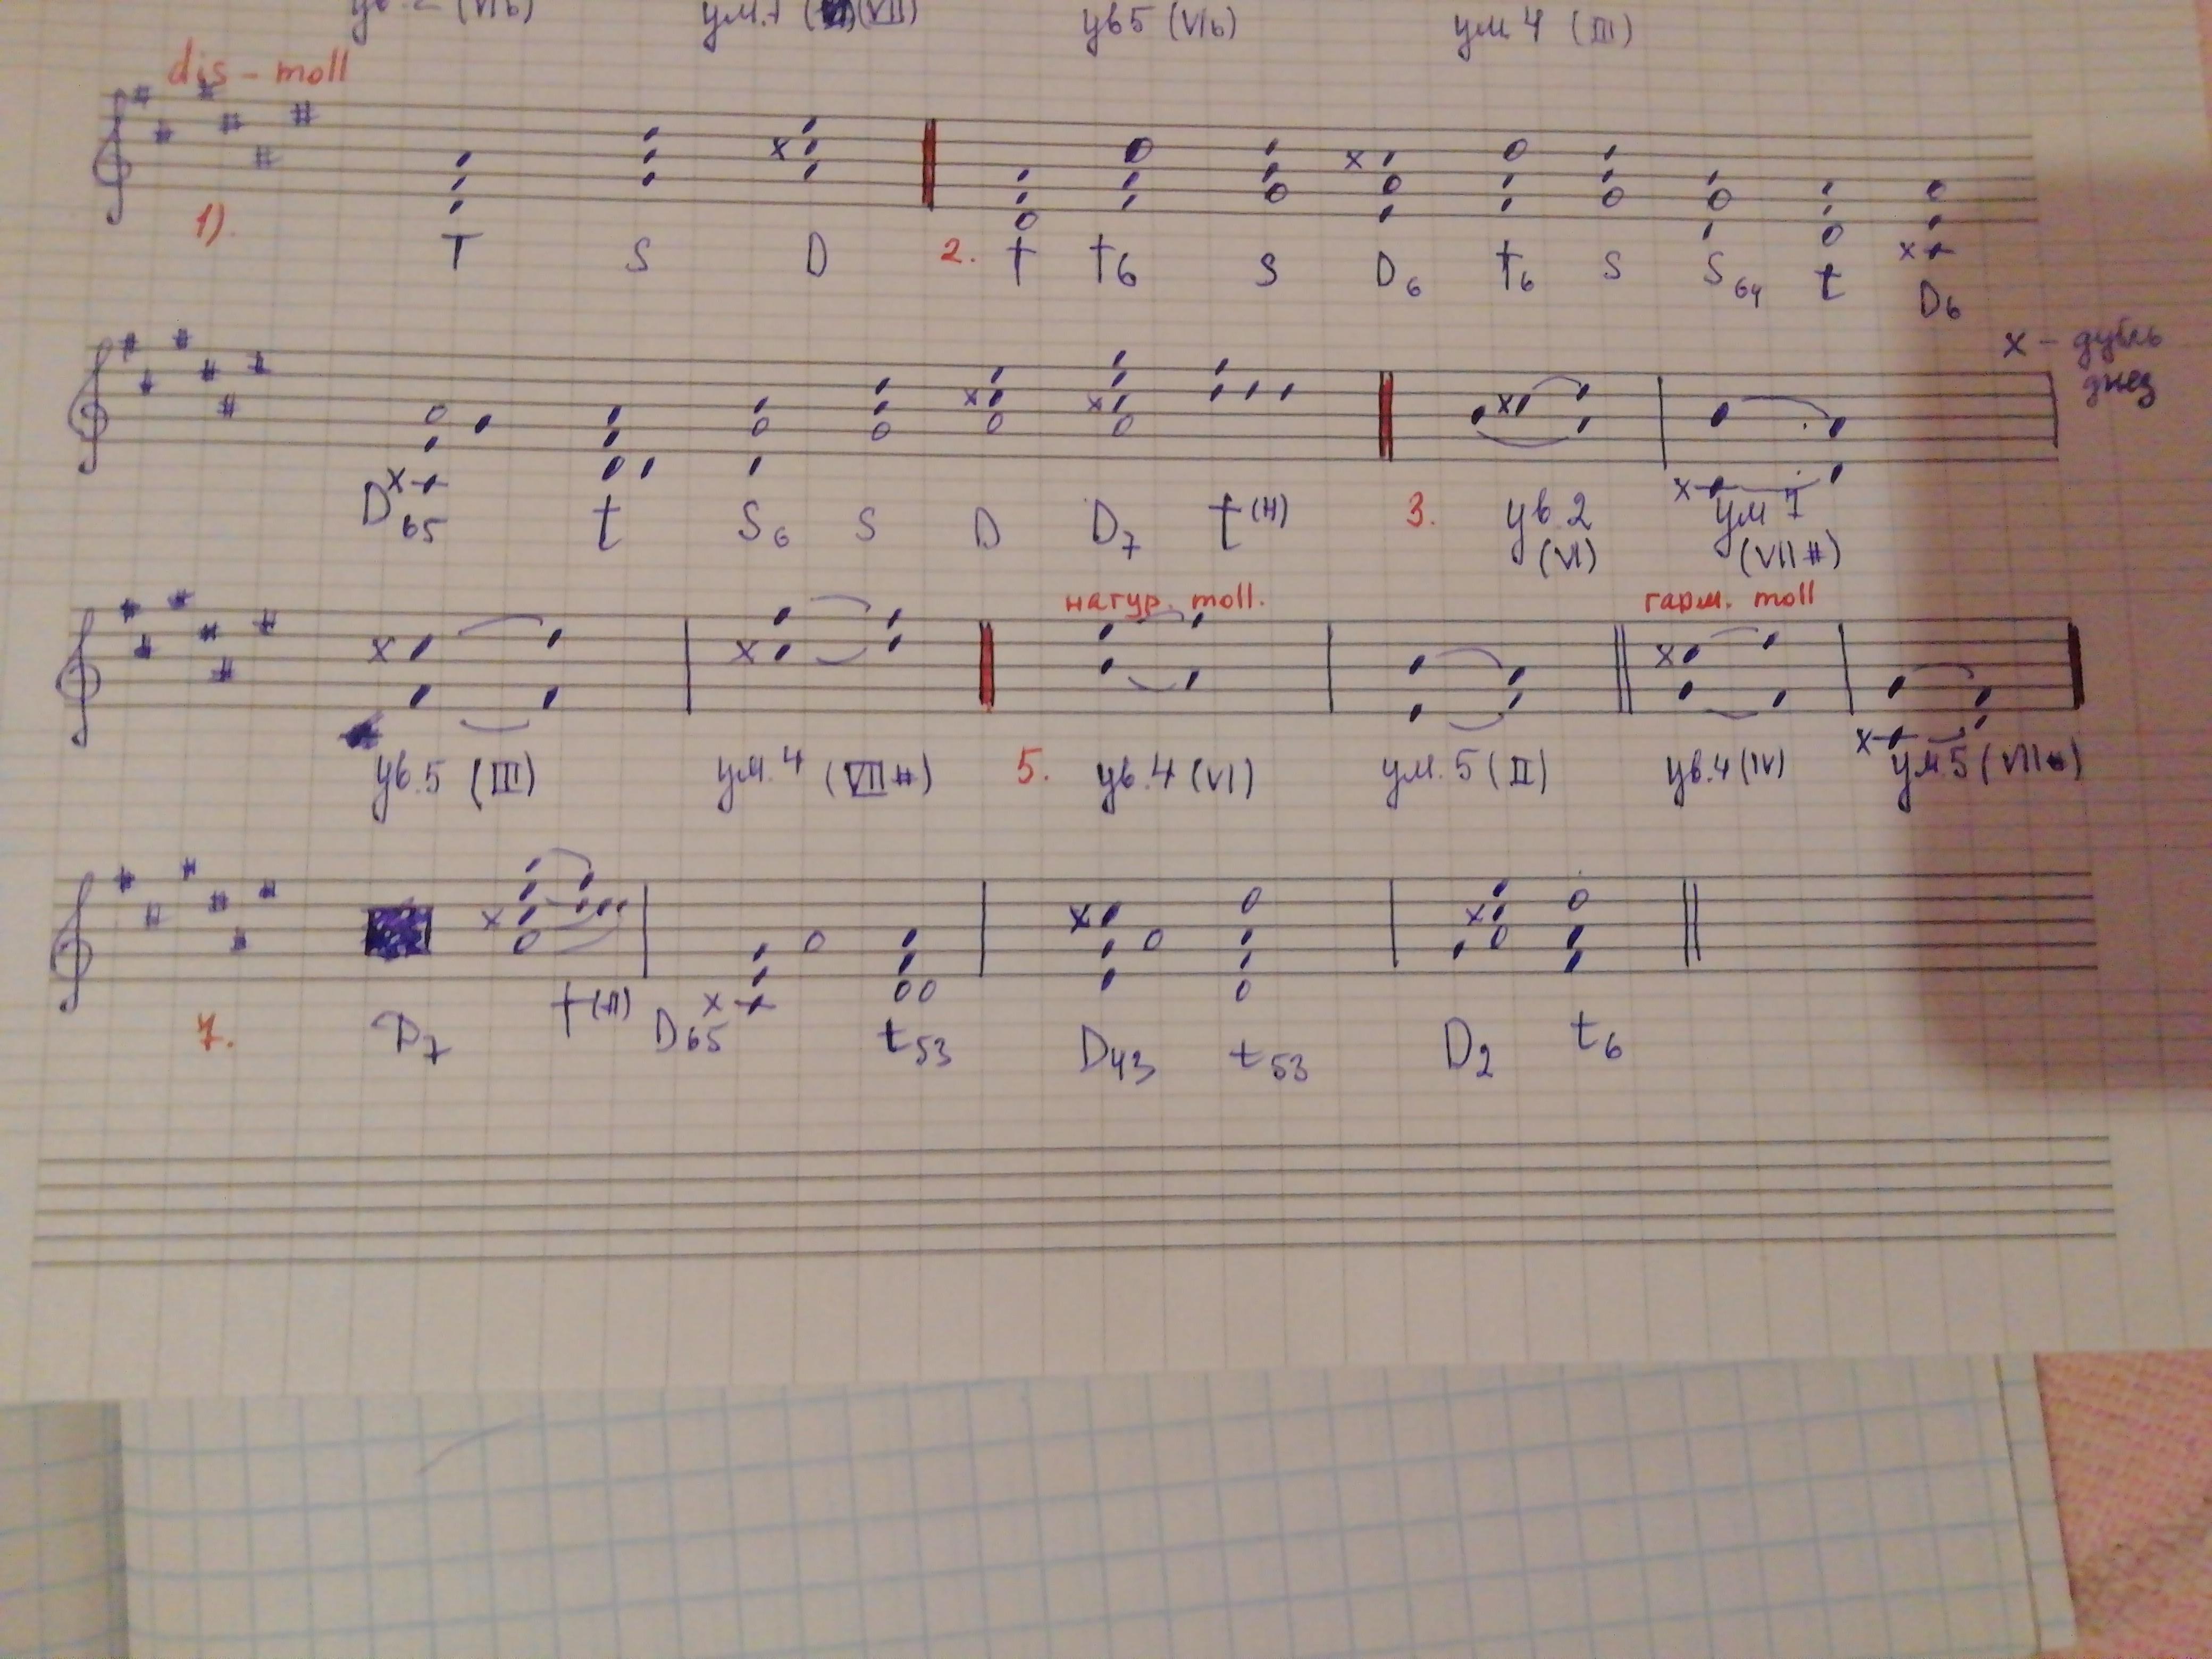 ув.2 (VIb) ум.7 (VII) ув5 (VIb) ум 4 (III)
dis - moll
1). T S D 2. t t6 S D6 t6 S S64 t D6
x - дубль
диез
D65 t S6 S D D7 t(н) 3. ув.2 (VI) ум 7 (VII#)
натур. moll. гарм. moll
ув.5 (III) ум.4 (VII#) 5. ув.4 (VI) ум.5 (II) ув.4 (IV) ум5 (VII#)
7. D7 t(н) D65 t53 D43 t53 D2 t6